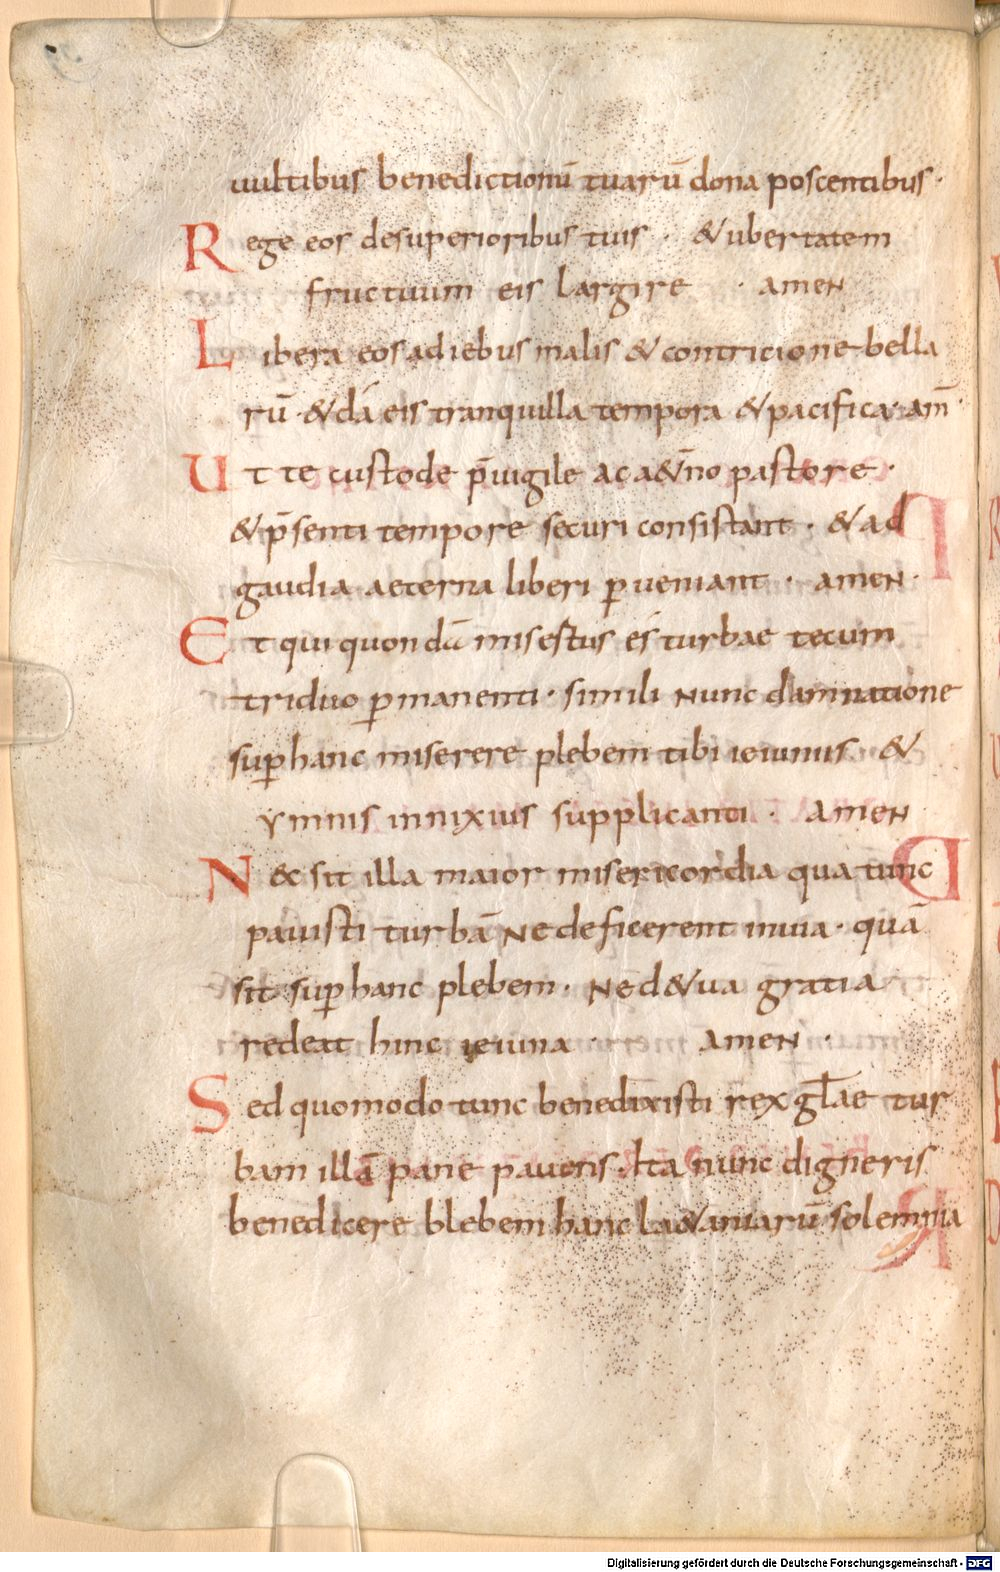 uultibus benedictionū tuarū dona poscentibus·
Rege eos desuperioribus tuis · & ubertatem
fructuum eis largire · amen
Libera eos ad iebus malis & contricione bella
rū · & dá eis tranquilla tempora & pacifica · am̄·
Ut te custode p̄uigile ac a&̄no pastore ·
& p̄senti tempore securi consistant · & ad
gaudia aeterna liberi ꝑueniant · amen ·
Et qui quondā misestus és turbae tecum
triduo ꝑmanenti · simili nunc damnatione
suꝑ hanc miserere plebem tibi ieiuniis &
ymnis innixius supplicanti · amen
Nec sit illa maior misericordia qua tunc
pauisti turbā ne deficerent inuia · quā
sit suꝑ hanc plebem · ne d&ua gratia
redeat hinc ieiuna · amen ·
Sed quomodo tunc benedixisti rex gl̄ae tur
bam illā pane pauens · Ita nunc digneris
benedicere blebem hanc la&aniarū solemnia
Digitalisierung gefördert durch die Deutsche Forschungsgemeinschaft - DFG